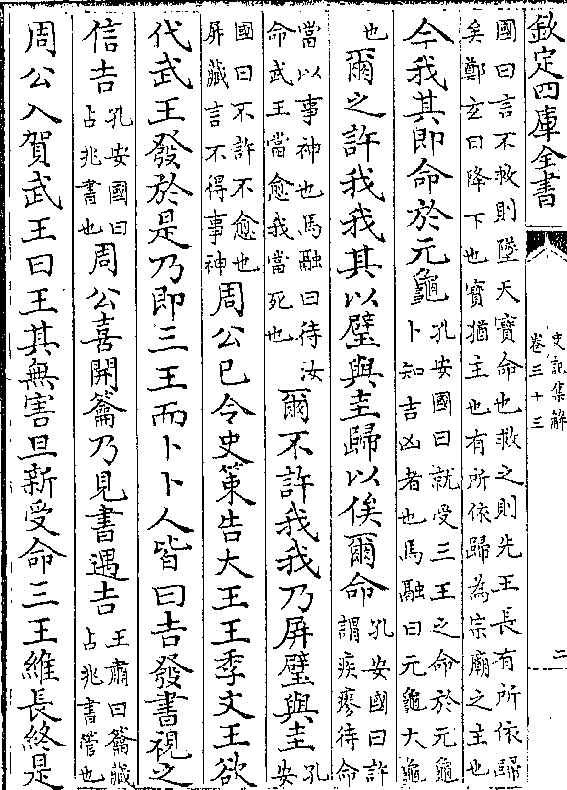 欽定四庫全書
史記集解
卷三十三
二
國曰言不救則墜天寶命也救之則先王長有所依歸
矣鄭玄曰降下也寶猶主也有所依歸為宗廟之主也
今我其即命於元龜
孔安國曰就受三王之命於元龜
卜知吉凶者也馬融曰元龜大龜
也
爾之許我我其以璧與圭歸以俟爾命
孔安國曰許
謂疾瘳待命
當以事神也馬融曰待汝
命武王當愈我當死也
爾不許我我乃屏璧與圭
孔
安
國曰不許不愈也
屏藏言不得事神
周公已令史策告大王王季文王欲
代武王發於是乃即三王而卜卜人皆曰吉發書視之
信吉
孔安國曰
占兆書也
周公喜開籥乃見書遇吉
王肅曰籥藏
占兆書管也
周公入賀武王曰王其無害旦新受命三王維長終是